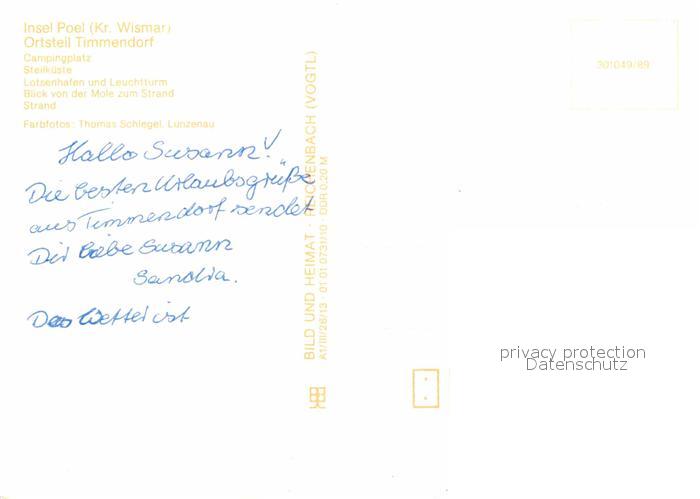 Insel Poel (Kr. Wismar)
Ortsteil Timmendorf
Campingplatz
Steilküste
Lotsenhafen und Leuchtturm
Blick von der Mole zum Strand
Strand
Farbfotos: Thomas Schlegel, Lunzenau
Hallo Susann!
Die besten Urlaubsgrüße
aus Timmendorf sendet
Dir liebe Susann
Sandra.
Das Wetter ist
BILD UND HEIMAT · REICHENBACH (VOGTL)
A1/III/26/13 · 01 01 0731/10 · DDR 0,20 M
301049/89
privacy protection
Datenschutz